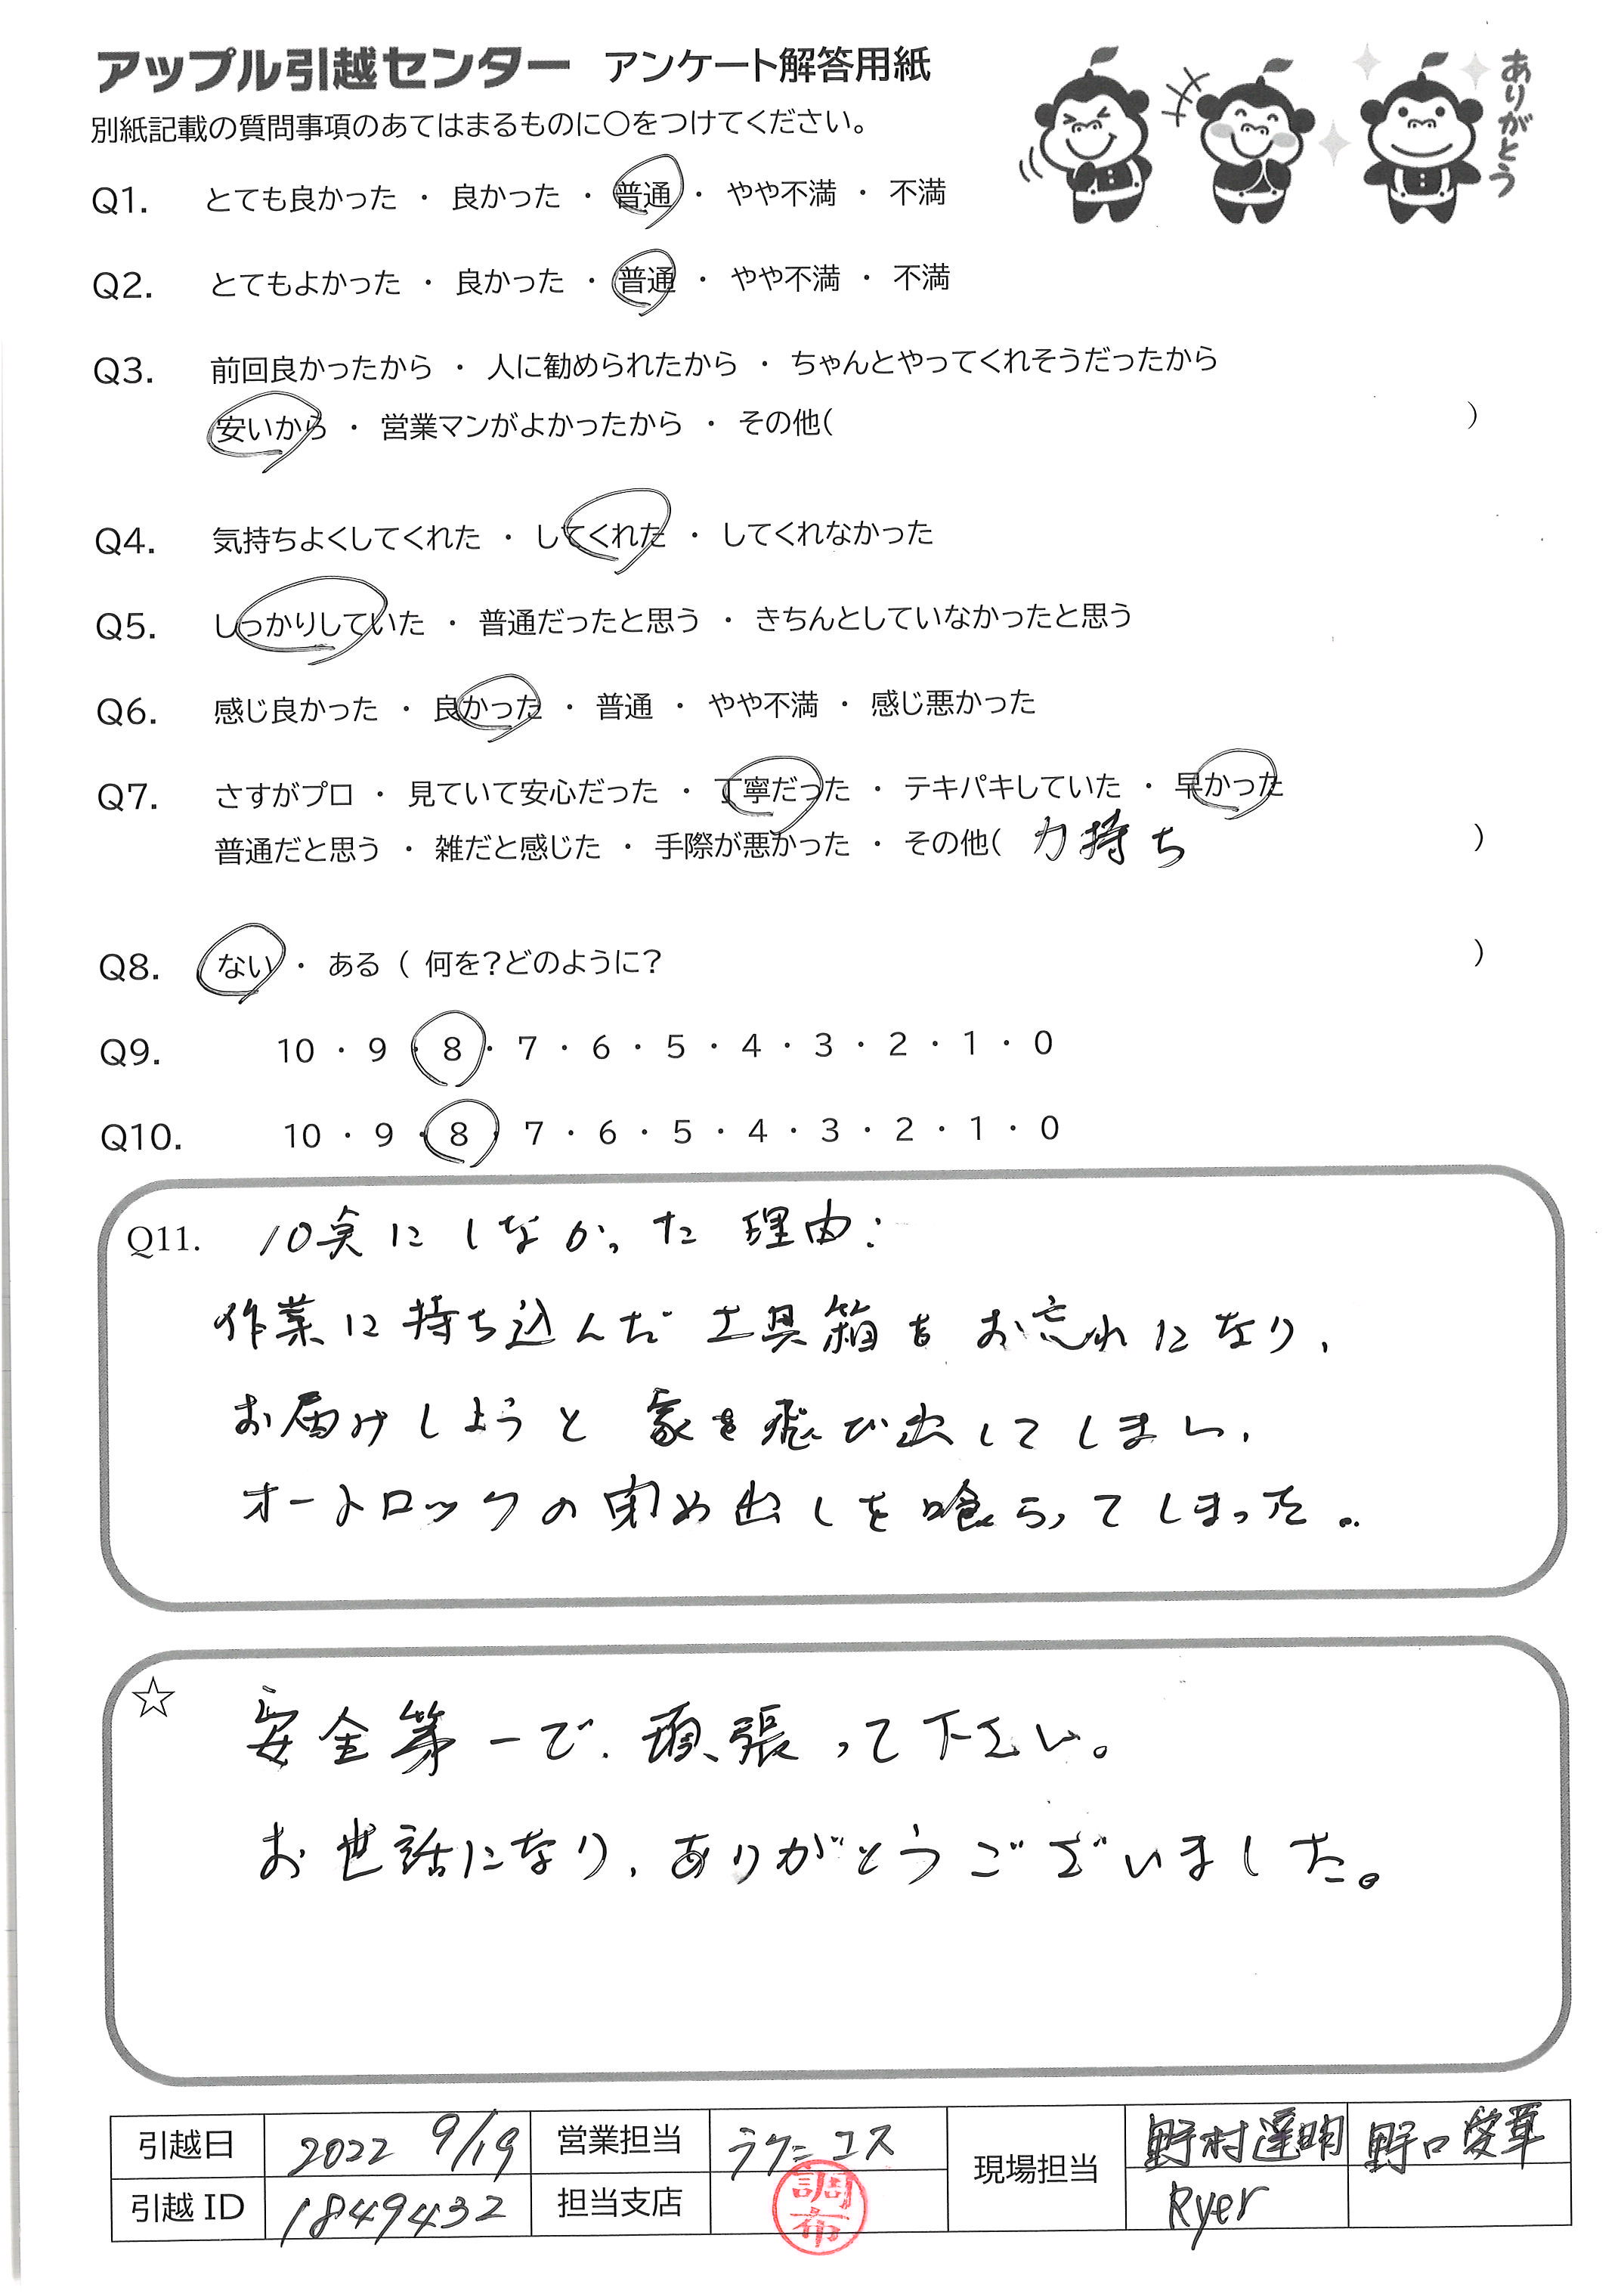 アップル引越センター アンケート解答用紙
ありがとう
別紙記載の質問事項のあてはまるものに○をつけてください。
Q1. とても良かった ・ 良かった ・ 普通 ・ やや不満 ・ 不満
Q2. とてもよかった ・ 良かった ・ 普通 ・ やや不満 ・ 不満
Q3. 前回良かったから ・ 人に勧められたから ・ ちゃんとやってくれそうだったから
安いから ・ 営業マンがよかったから ・ その他( )
Q4. 気持ちよくしてくれた ・ してくれた ・ してくれなかった
Q5. しっかりしていた ・ 普通だったと思う ・ きちんとしていなかったと思う
Q6. 感じ良かった ・ 良かった ・ 普通 ・ やや不満 ・ 感じ悪かった
Q7. さすがプロ ・ 見ていて安心だった ・ 丁寧だった ・ テキパキしていた ・ 早かった
普通だと思う ・ 雑だと感じた ・ 手際が悪かった ・ その他( 力持ち )
Q8. ない ・ ある ( 何を?どのように? )
Q9. 10 ・ 9 ・ 8 ・ 7 ・ 6 ・ 5 ・ 4 ・ 3 ・ 2 ・ 1 ・ 0
Q10. 10 ・ 9 ・ 8 ・ 7 ・ 6 ・ 5 ・ 4 ・ 3 ・ 2 ・ 1 ・ 0
Q11. 10点にしなかった理由:
作業に持ち込んだ工具箱をお忘れになり、
お届けしようと家を飛び出してしまい、
オートロックの閉め出しを喰らってしまった。
☆ 安全第一で、頑張って下さい。
お世話になり、ありがとうございました。
引越日 2022 9/19 営業担当 ラクニコス 現場担当 野村達明 野口
引越ID 18494432 担当支店 調布 Ryer